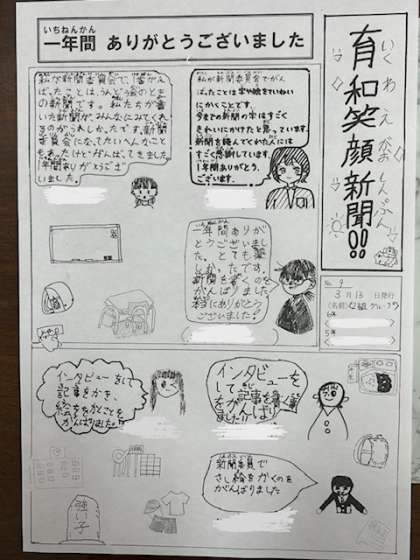 いちねんかん
一年間 ありがとうございました
いくわえがおしんぶん
育和笑顔新聞!!
No. 9
3月13日発行
(名前)C組グループ
6年
5年
私が新聞委員会で、1番がん
ばったことは、うんどう会のとき
の新聞です。私たちが書
いた新聞が、みんなにみてくれ
るのがうれしかったです。新聞
委員会になって、たいへんなこと
もあったけど、がんばってきました。
1年間ありがとうござ
いました。
私が新聞委員会でがん
ばったことは字や絵をていねい
にかくことです。
今までの新聞の字はすごく
きれいにかけたと思っています。
新聞を読んでくれた人には
すごく感謝しています。
1年間ありがとう
ございます。
一年間ありが
とうございました。
とても
しかったです。
新聞を書くのを
がんばりました。
本当にありがとう
ございました。
インタビューをして
記事をかき、
絵をかくことを
がんばりました!!
インタビューを
して、記事を書く
をがんばり
ました!
新聞委員で
さし絵をかくのを
がんばりました
強い子